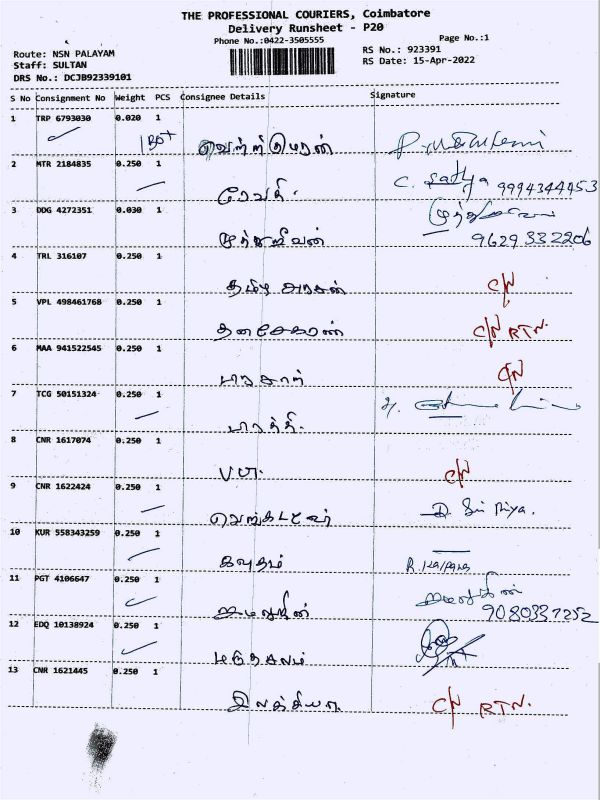 THE PROFESSIONAL COURIERS, Coimbatore
Delivery Runsheet - P20
Phone No.:0422-3505555
Page No.:1
Route: NSN PALAYAM
Staff: SULTAN
DRS No.: DCJB92339101
RS No.: 923391
RS Date: 15-Apr-2022
S No Consignment No Weight PCS Consignee Details Signature
1 TRP 6793030 0.020 1
2 MTR 2184835 0.250 1 C. Sathya 9994344453
ரேவதி.
3 DDG 4272351 0.030 1
9629332206
4 TRL 316107 0.250 1
தமிழ் அரசன் C/N
5 VPL 498461768 0.250 1
தனசேகரன் C/N RTN.
6 MAA 941522545 0.250 1
C/N
7 TCG 50151324 0.250 1
பாரத்தி.
8 CNR 1617074 0.250 1
C/N
9 CNR 1622424 0.250 1
D. Sri Priya.
10 KUR 558343259 0.250 1
கவுதம் R. Kalpana
11 PGT 4106647 0.250 1
9080337252
12 EDQ 10138924 0.250 1
மருதாசலம்
13 CNR 1621445 0.250 1
C/N RTN.